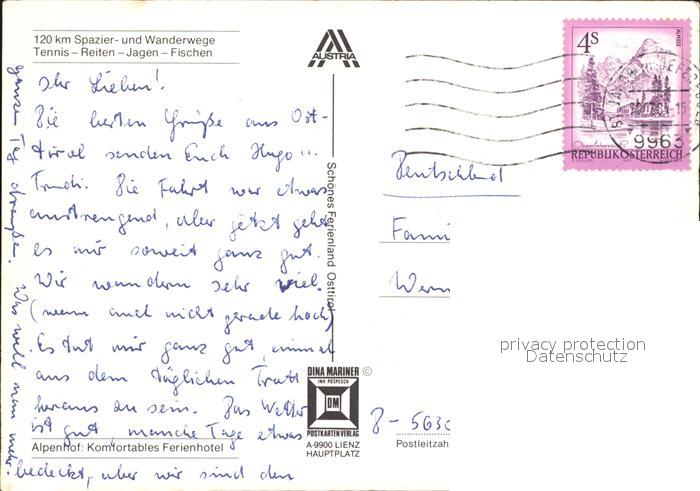 120 km Spazier- und Wanderwege
Tennis – Reiten – Jagen – Fischen
AUSTRIA
Ihr Lieben!
Die besten Grüße aus Ost-
tirol senden Euch Hugo u.
Trudi. Die Fahrt war etwas
anstrengend, aber jetzt geht
es mir soweit ganz gut.
Wir wandern sehr viel.
(wenn auch nicht gerade hoch)
Es tut mir ganz gut, einmal
aus dem täglichen Trott
heraus zu sein. Das Wetter
ist gut, manche Tage etwas
bedeckt, aber wir sind den
ganzen Tag draußen. Was will man mehr.
Alpenhof: Komfortables Ferienhotel
Schönes Ferienland Osttirol
DINA MARINER ©
INH POSPESCH
DM
POSTKARTENVERLAG
A-9900 LIENZ
HAUPTPLATZ
4S
ALMSEE
REPUBLIK ÖSTERREICH
9963
Deutschland
Fami
Wern
privacy protection
Datenschutz
D - 5630
Postleitzah